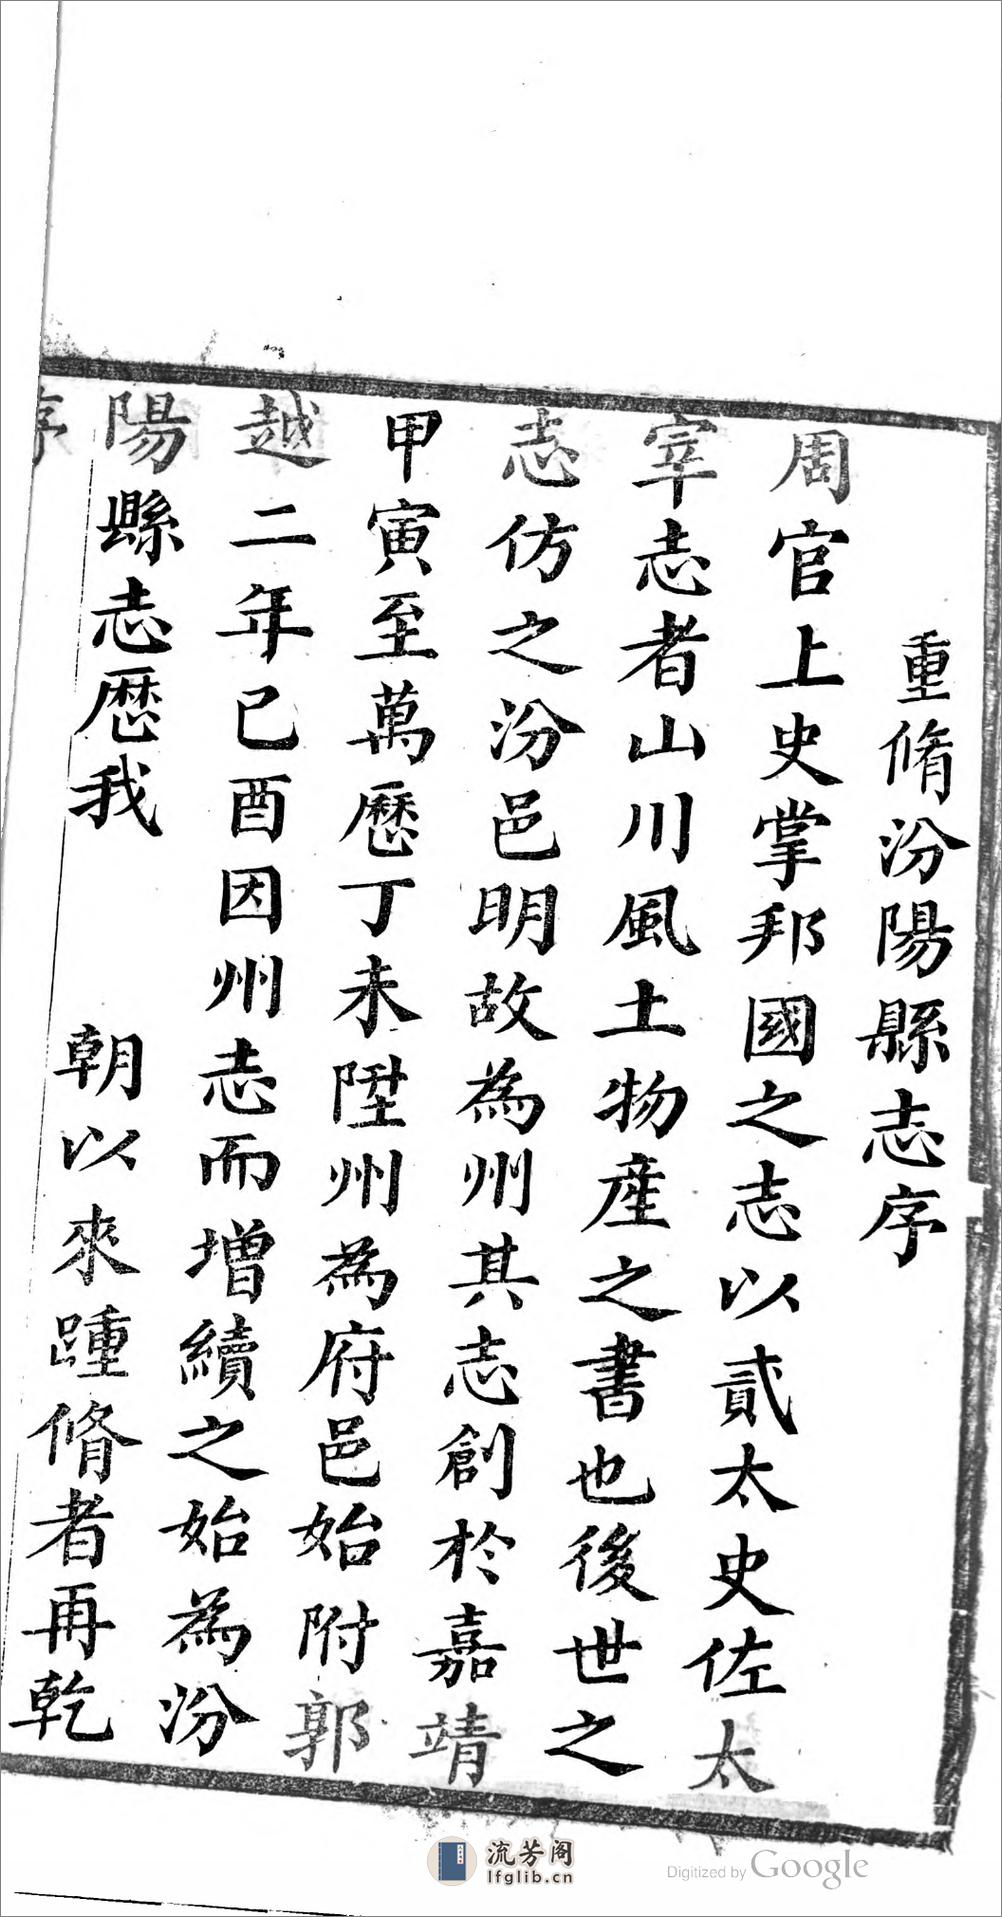 重脩汾陽縣志序
周官上史掌邦國之志以貳太史佐太
宰志者山川風土物產之書也後世之
志仿之汾邑明故為州其志創於嘉靖
甲寅至萬歷丁未陞州為府邑始附郭
越二年己酉因州志而增續之始為汾
陽縣志歷我 朝以來踵脩者再乾
序
流芳阁
lfglib.cn
Digitized by Google